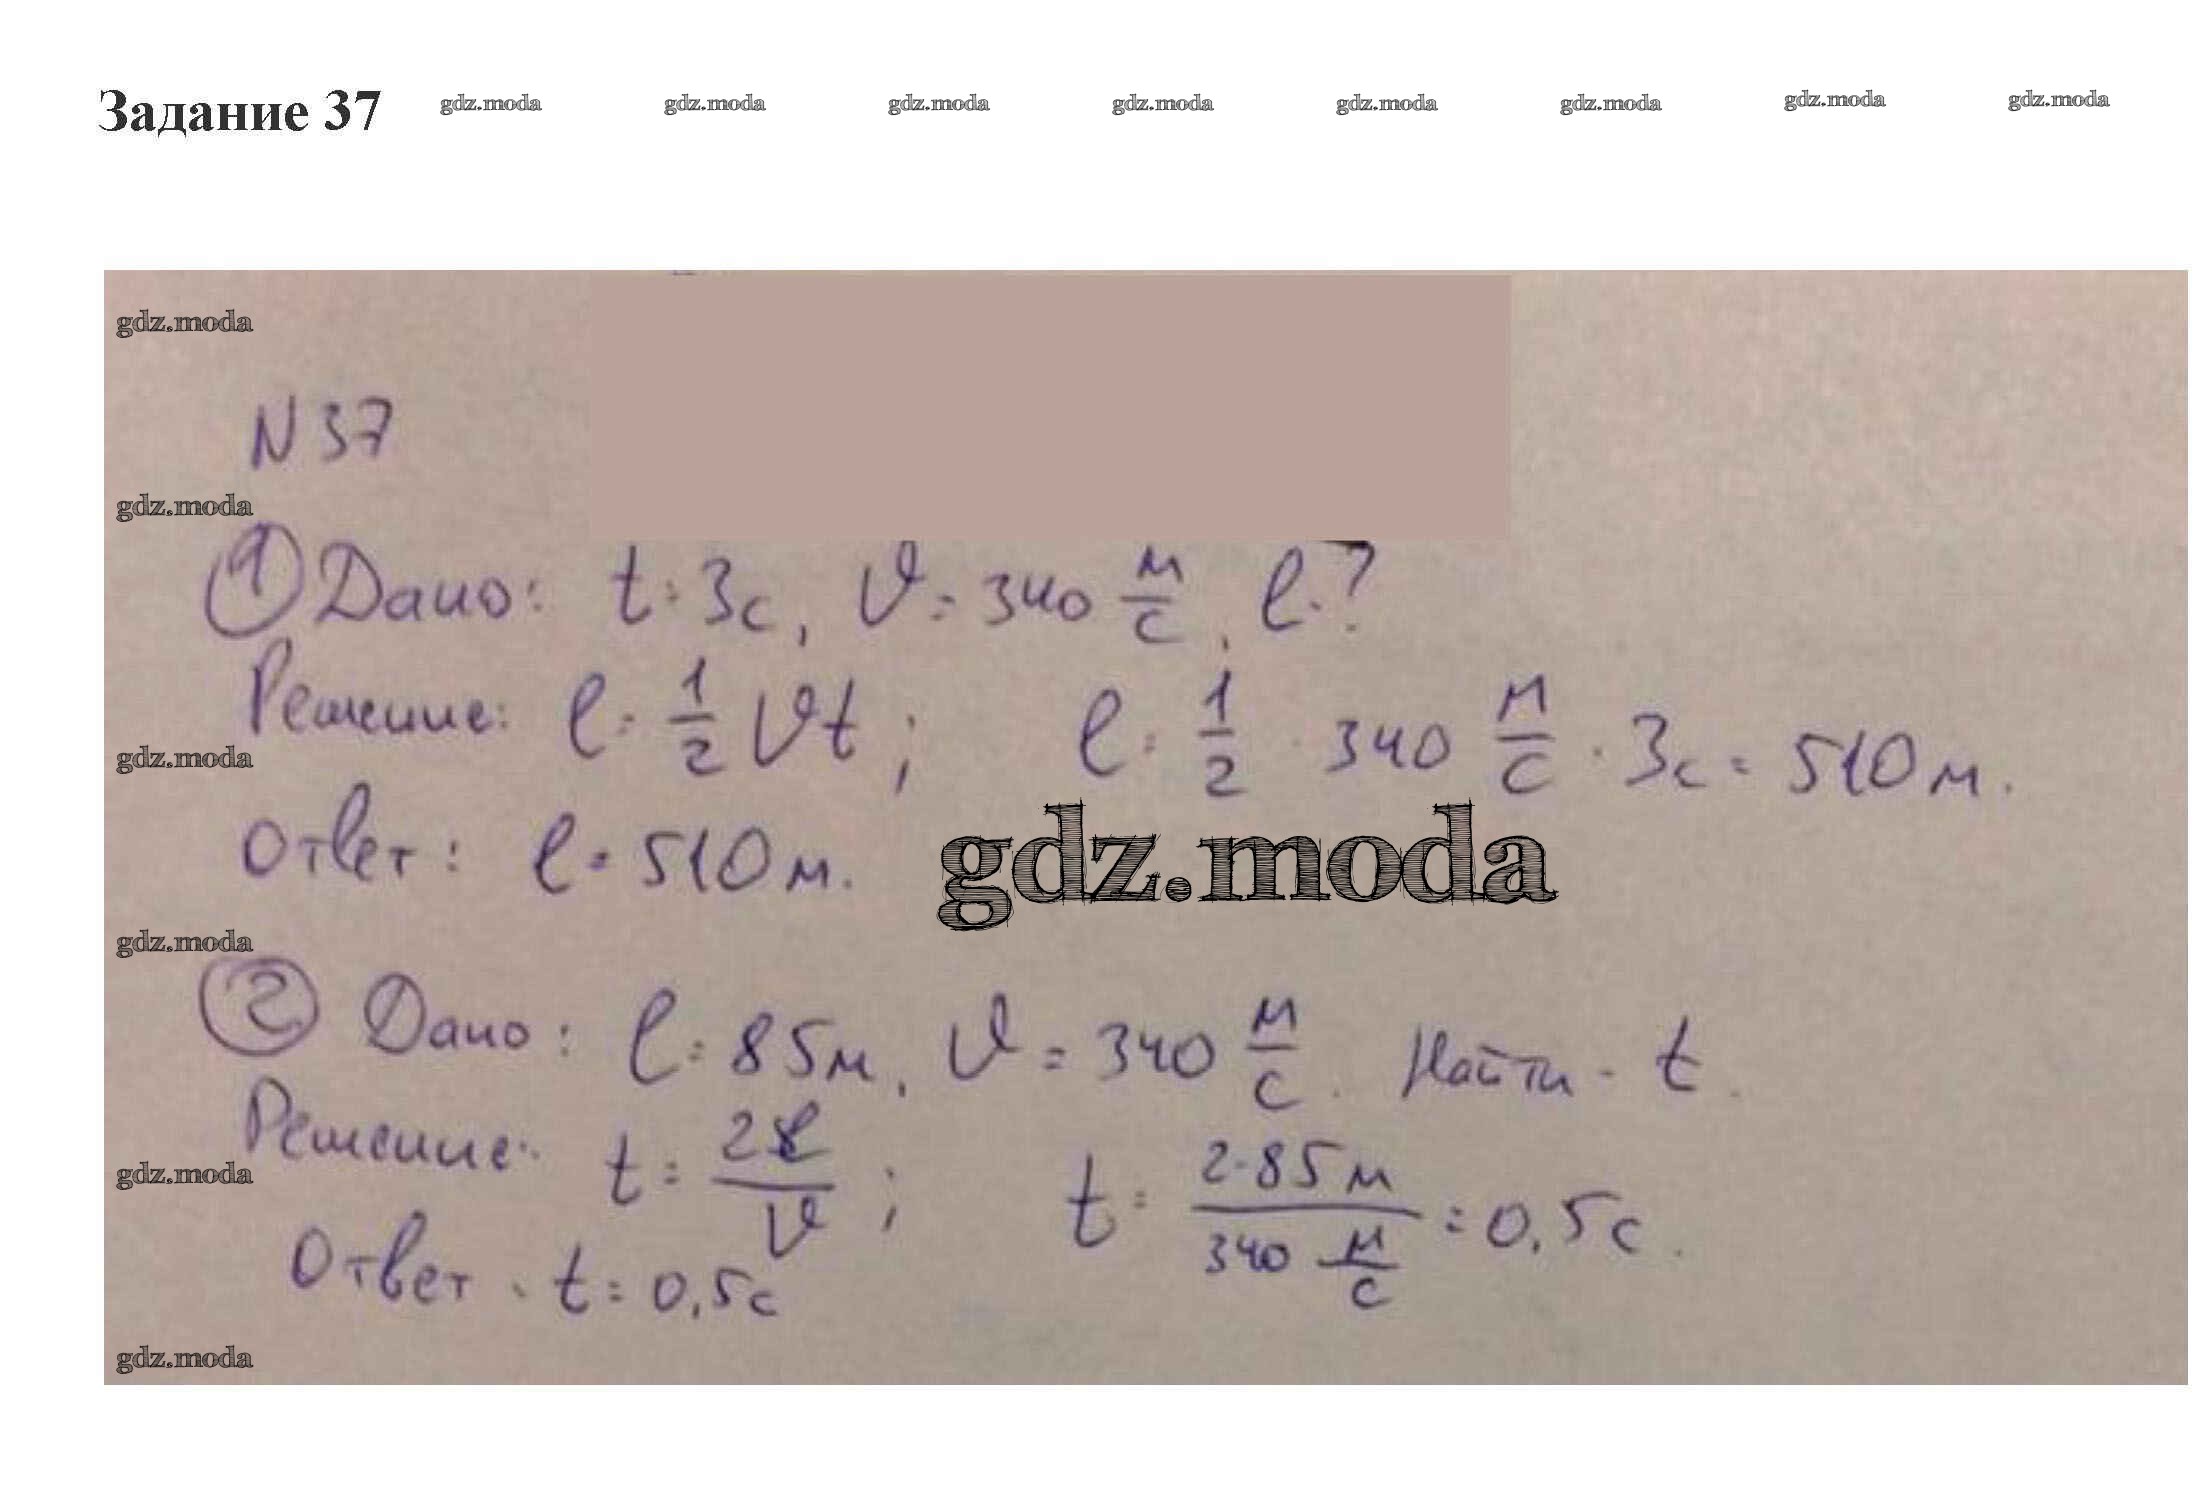 Задание 37 gdz.moda gdz.moda gdz.moda gdz.moda gdz.moda gdz.moda gdz.moda gdz.moda
gdz.moda
N 37
gdz.moda
① Дано: t = 3с, v = 340 м/с, l - ?
Решение: l = 1/2 vt; l = 1/2 · 340 м/с · 3с = 510 м.
gdz.moda
Ответ: l = 510 м.
gdz.moda
gdz.moda
② Дано: l = 85м, v = 340 м/с. Найти - t.
Решение: t = 2l/v; t = 2·85 м / 340 м/с = 0,5с.
gdz.moda
Ответ: t = 0,5с
gdz.moda